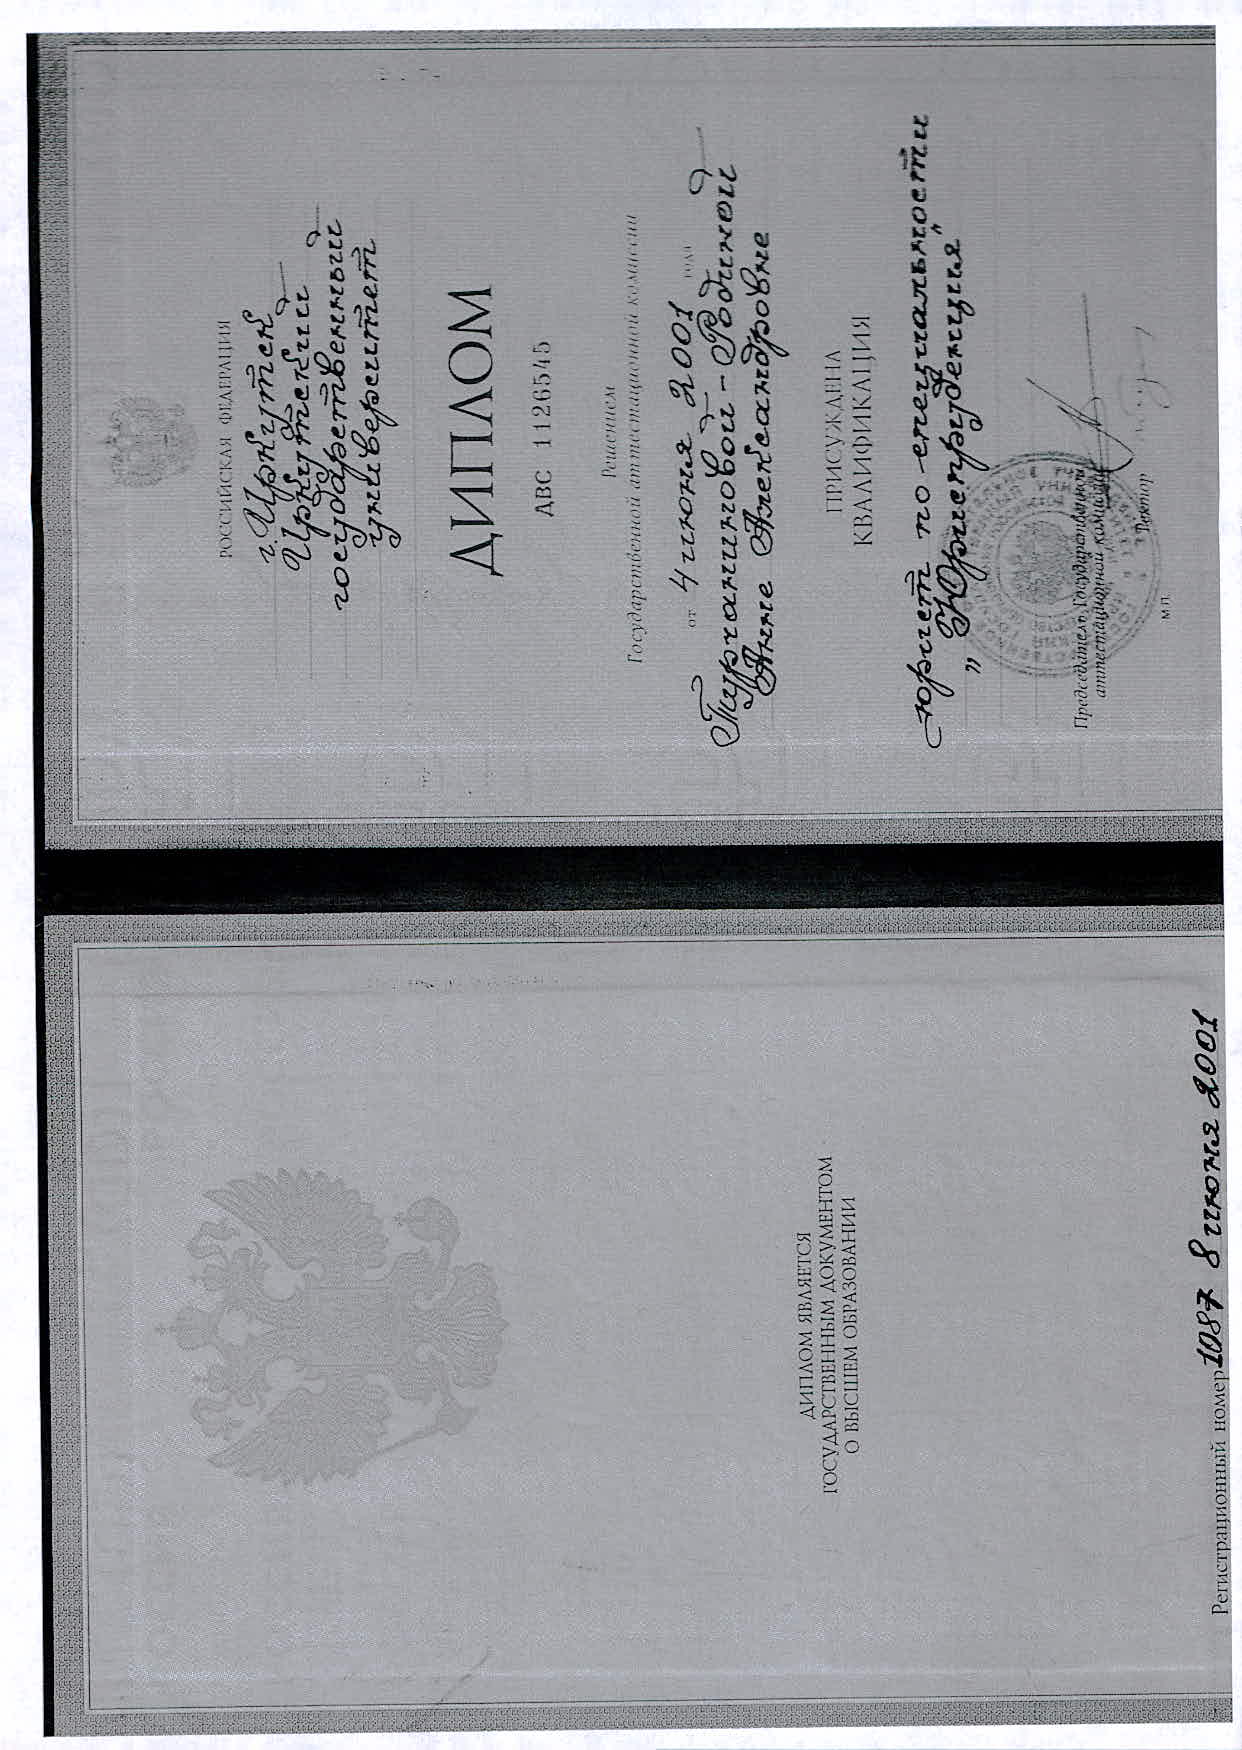 ДИПЛОМ ЯВЛЯЕТСЯ
ГОСУДАРСТВЕННЫМ ДОКУМЕНТОМ
О ВЫСШЕМ ОБРАЗОВАНИИ
Регистрационный номер 1087 8 июня 2001
РОССИЙСКАЯ ФЕДЕРАЦИЯ
г. Иркутск
Иркутский
государственный
университет
ДИПЛОМ
АВС 1126545
Решением
Государственной аттестационной комиссии
от 4 июня 2001 года
Турчаниновой-Родиной
Анне Александровне
ПРИСУЖДЕНА
КВАЛИФИКАЦИЯ
юрист по специальности
„Юриспруденция"
Председатель Государственной
аттестационной комиссии
Ректор
М.П.